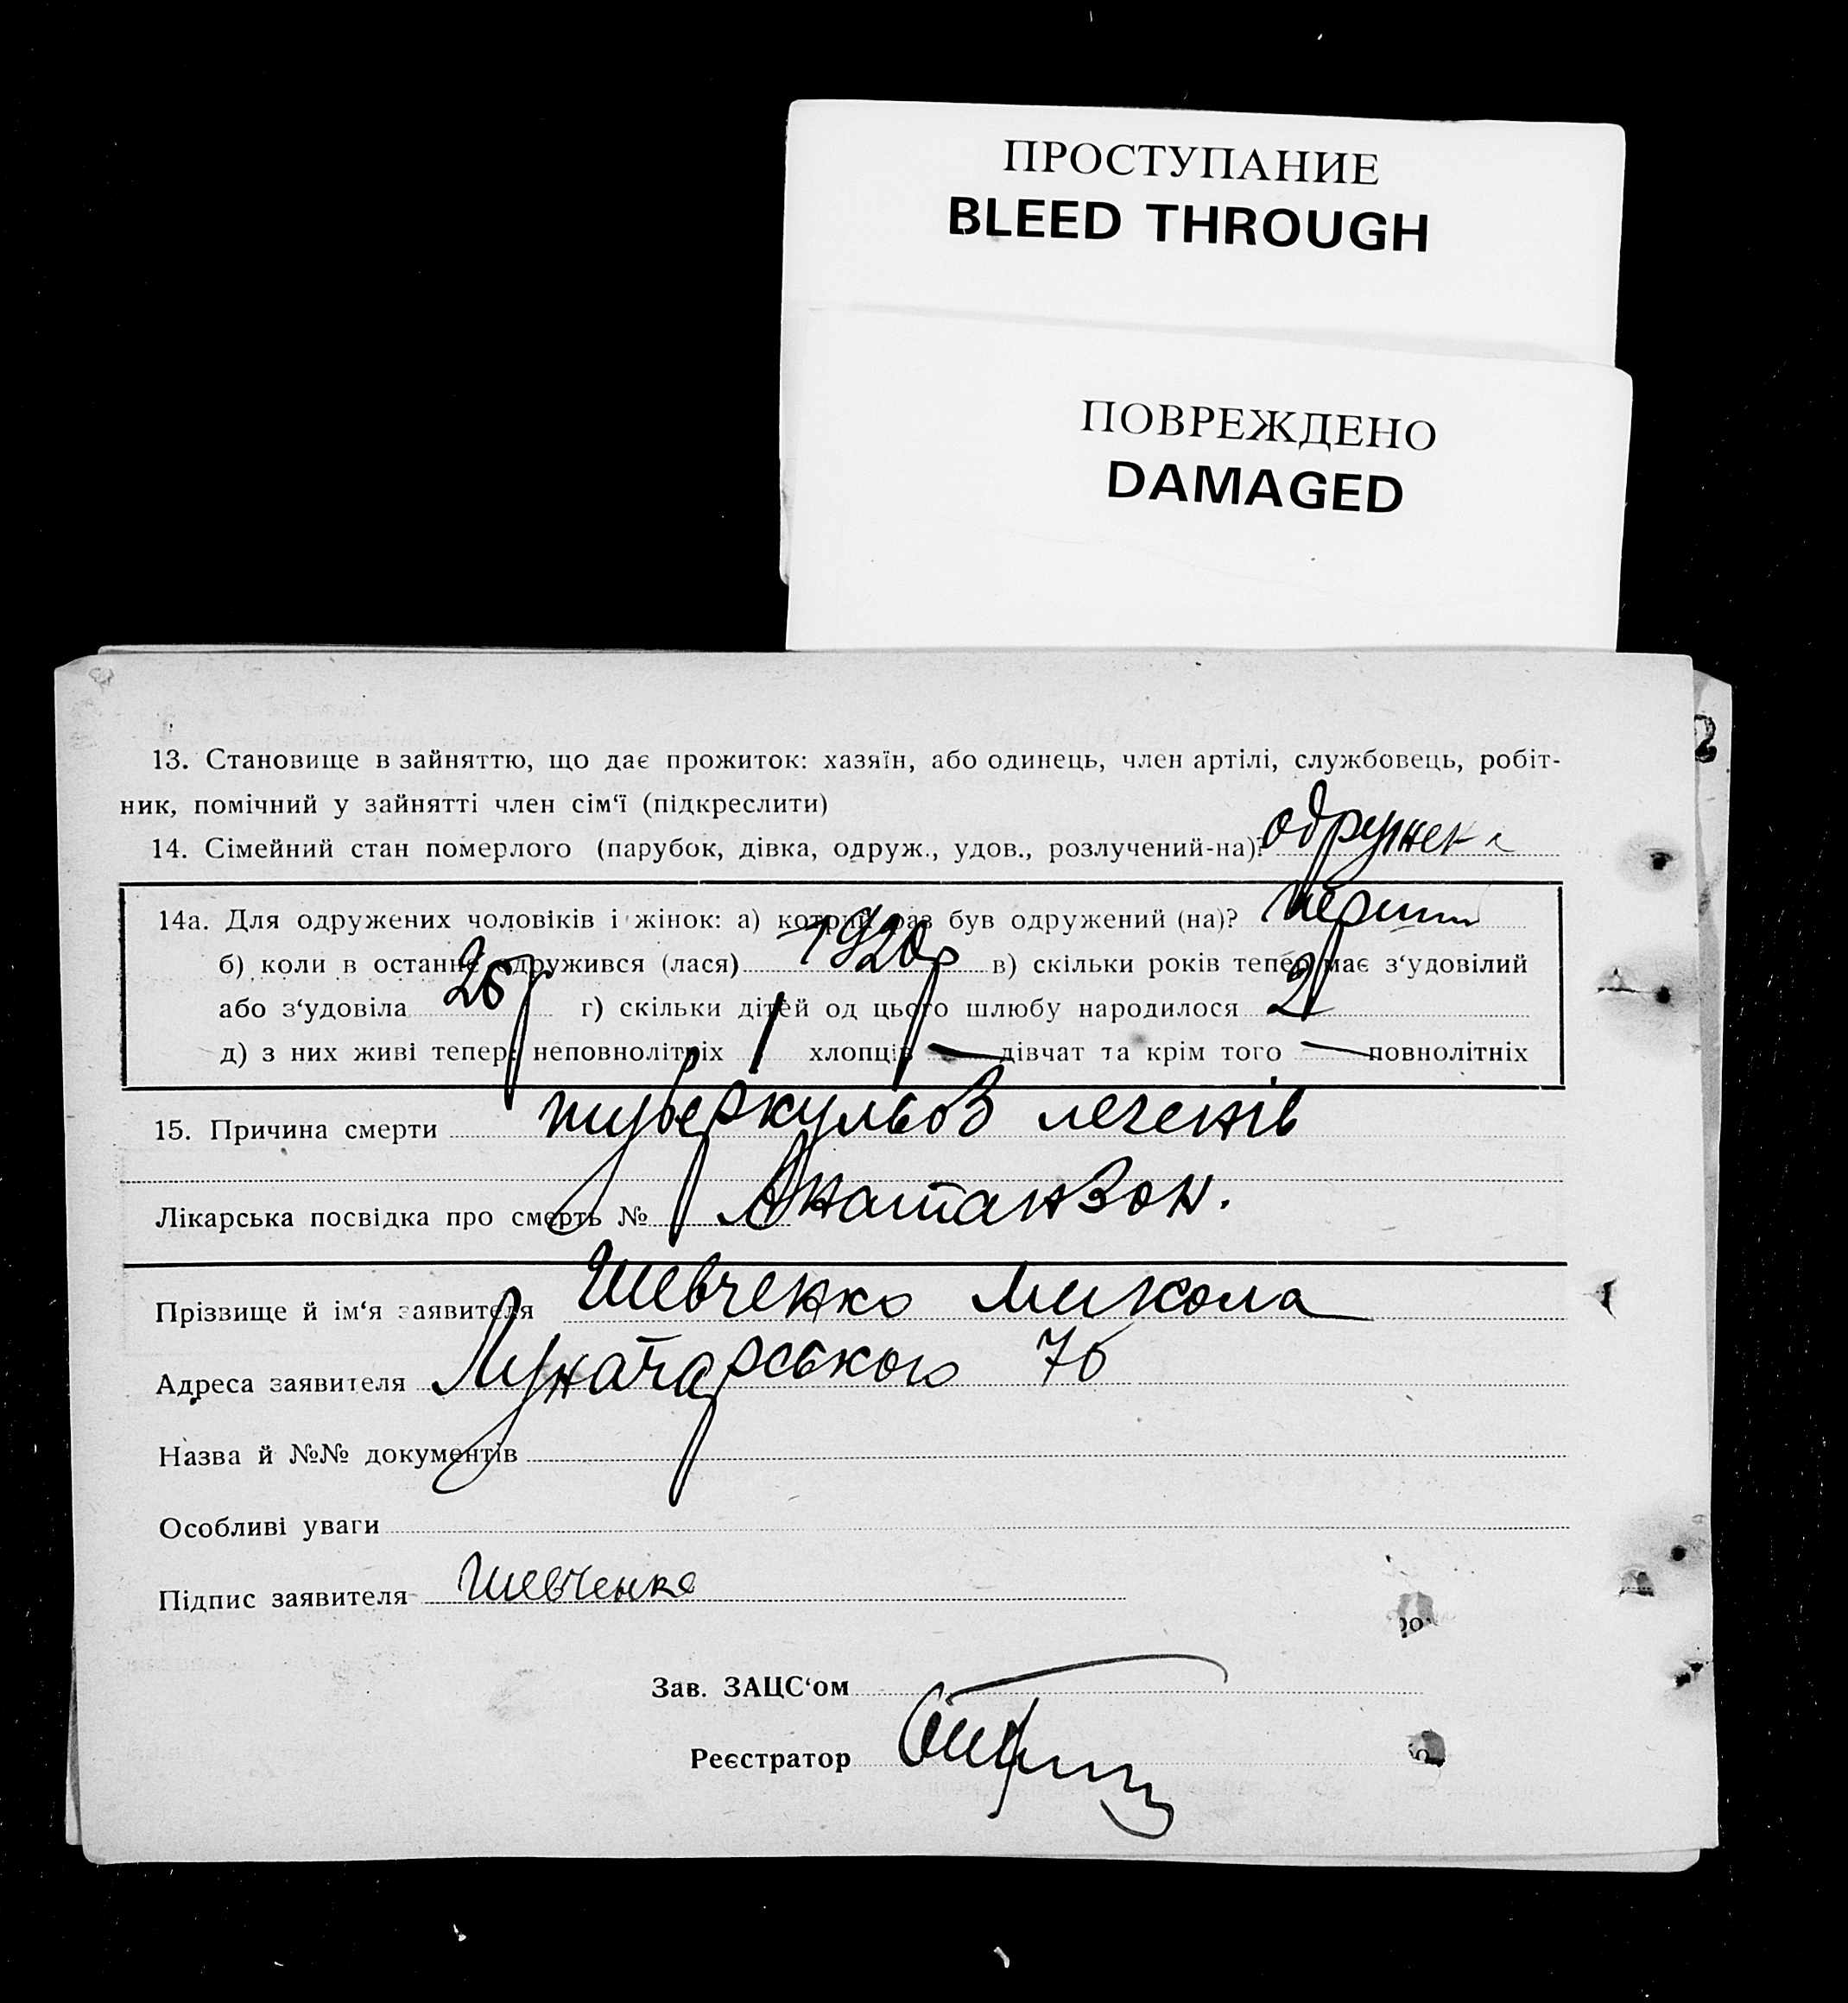 ПРОСТУПАНИЕ
BLEED THROUGH
ПОВРЕЖДЕНО
DAMAGED
2
13. Становище в зайняттю, що дає прожиток: хазяїн, або одинець, член артілі, службовець, робіт-
ник, помічний у зайнятті член сім‘ї (підкреслити)
14. Сімейний стан померлого (парубок, дівка, одруж., удов., розлучений-на)? одружена
14а. Для одружених чоловіків і жінок: а) котрий раз був одружений (на)? перший
б) коли в останнє одружився (лася) 1920р в) скільки років тепер має з‘удовілий
або з‘удовіла 25р г) скільки дітей од цього шлюбу народилося 2
д) з них живі тепер: неповнолітніх 1 хлопців — дівчат та крім того — повнолітніх
15. Причина смерти туберкульоз легенів
Лікарська посвідка про смерть № Анатанзон.
Прізвище й ім‘я заявителя Шевченко Микола
Адреса заявителя Луначарського 76
Назва й №№ документів
Особливі уваги
Підпис заявителя Шевченко
Зав. ЗАЦС‘ом
Реєстратор